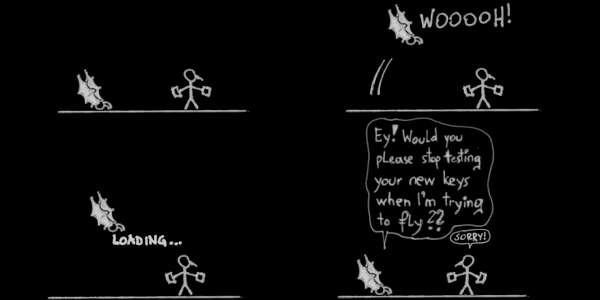 WOOOOH!
LOADING...
Ey! Would you
please stop testing
your new keys
when I'm trying
to fly??
SORRY!